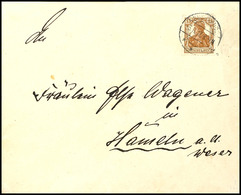 An
Fräulein Else Wagener
in
Hameln a. d.
Weser